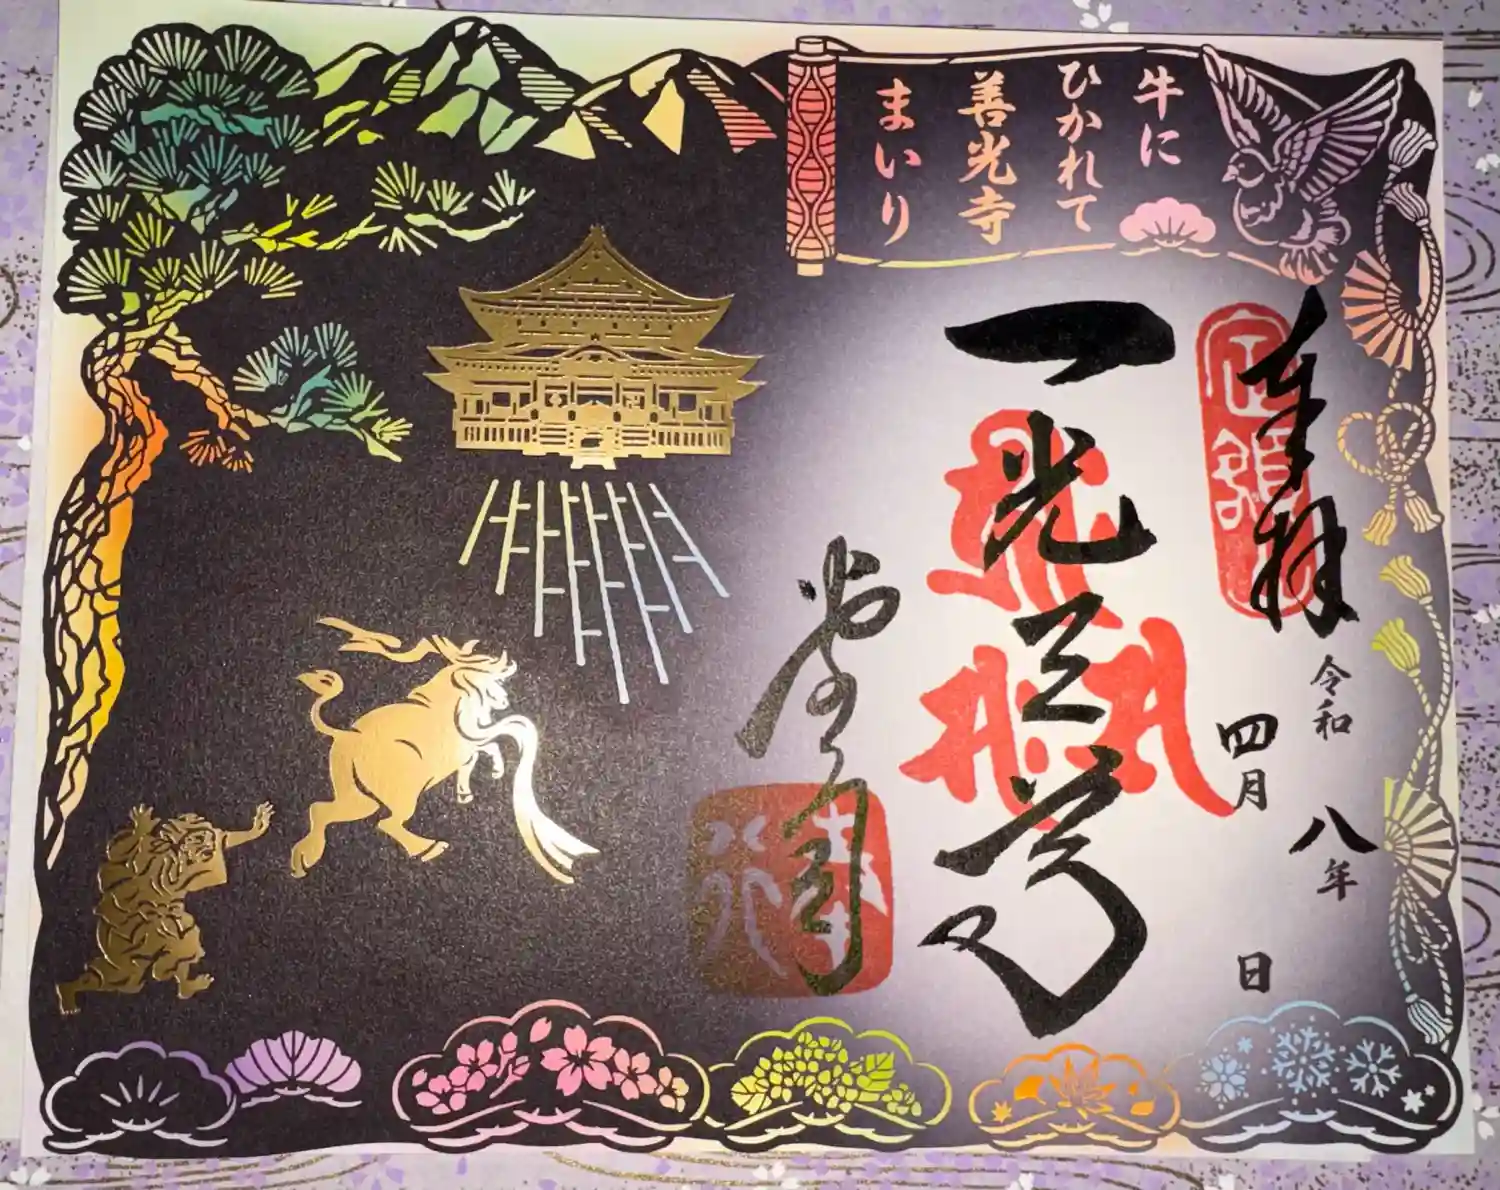 牛に
ひかれて
善光寺
まいり
奉拝
定額
令和 八年
四月 日
一光三尊